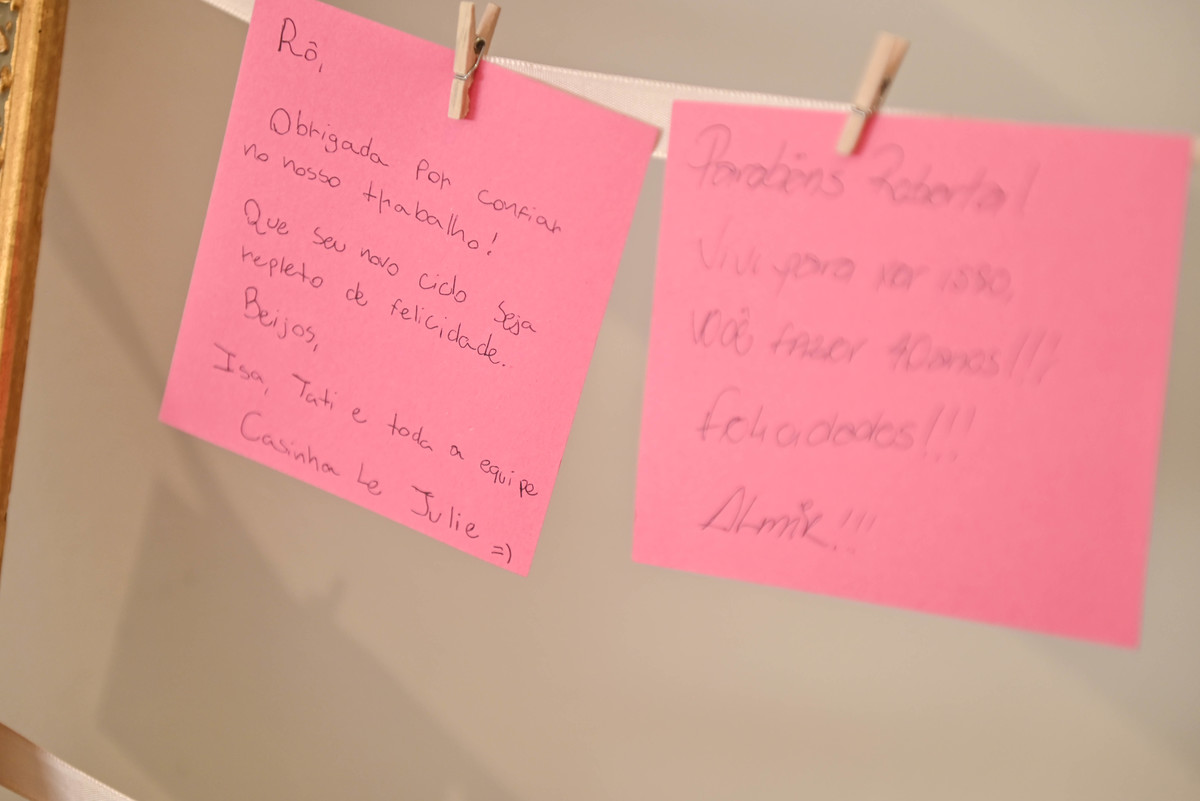 Rô,
Obrigada por confiar
no nosso trabalho!
Que seu novo ciclo seja
repleto de felicidade.
Beijos,
Isa, Tati e toda a equipe
Casinha Le Julie =)
Parabéns Roberta!
Vivi para ver isso,
você fazer 40 anos!!!
Felicidades!!!
Almir!!!